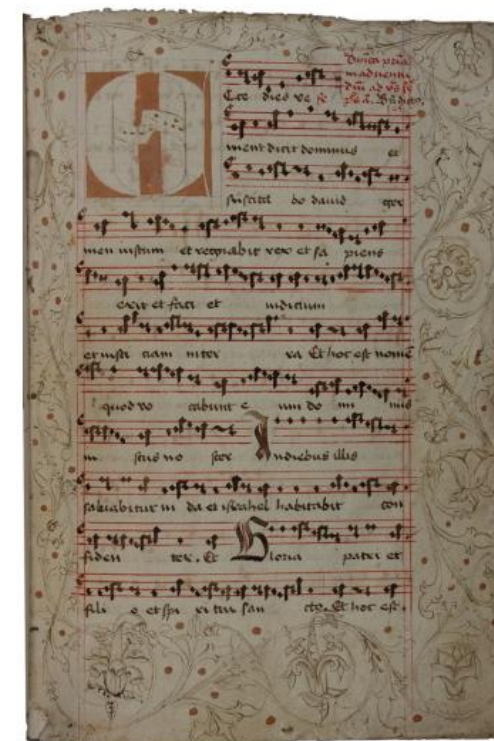 Ecce dies ve
nient dicit dominus et
suscita bo dauid ger
men iustum et regnabit rex et sa piens
erit et faci et iudicium
et iusti ciam in ter ra Et hoc est nomē
quod vo cabunt e um do mi nus
iu stus no ster In diebus illis
saluabitur iu da et israhel habitabit con
fiden ter. Et Gloria patri et
fili o et spi ri tui san cto. Et hoc est.